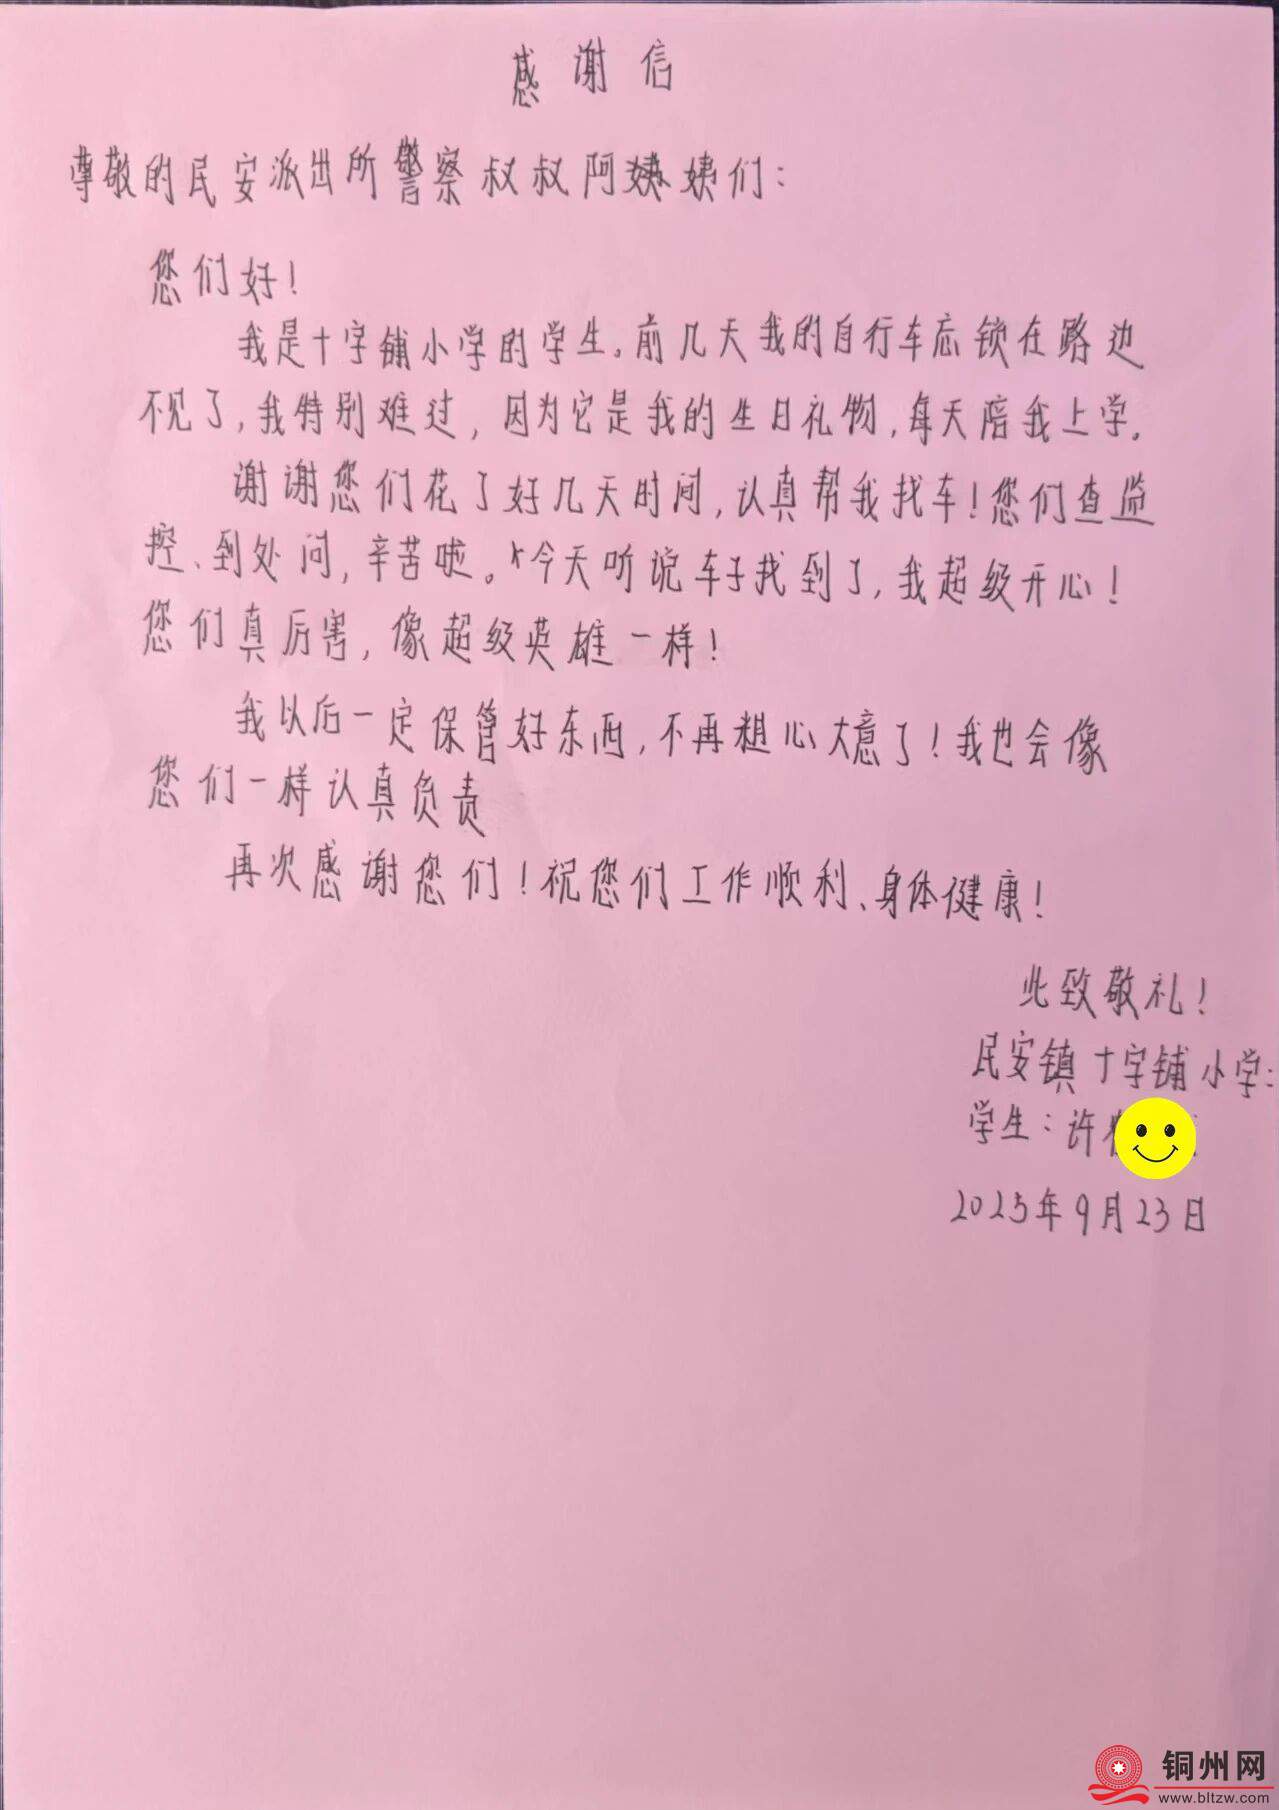 感谢信
尊敬的民安派出所警察叔叔阿姨姨们：
您们好！
我是十字铺小学的学生。前几天我的自行车忘锁在路边
不见了，我特别难过，因为它是我的生日礼物，每天陪我上学。
谢谢您们花了好几天时间，认真帮我找车！您们查监
控、到处问，辛苦啦。今天听说车子找到了，我超级开心！
您们真厉害，像超级英雄一样！
我以后一定保管好东西，不再粗心大意了！我也会像
您们一样认真负责
再次感谢您们！祝您们工作顺利、身体健康！
此致敬礼！
民安镇十字铺小学：
学生：许
2025年9月23日
铜州网
www.bltzw.com